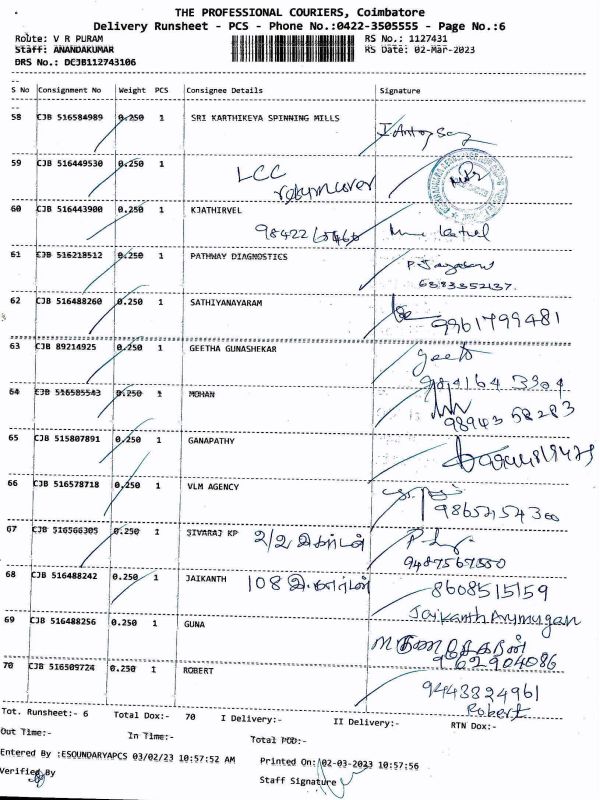 THE PROFESSIONAL COURIERS, Coimbatore
Delivery Runsheet - PCS - Phone No.:0422-3505555 - Page No.:6
Route: V R PURAM RS No.: 1127431
Staff: ANANDAKUMAR RS Date: 02-Mar-2023
DRS No.: DCJB112743106
S No Consignment No Weight PCS Consignee Details Signature
58 CJB 516584989 0.250 1 SRI KARTHIKEYA SPINNING MILLS
59 CJB 516449530 0.250 1 LCC
60 CJB 516443900 0.250 1 KJATHIRVEL
61 CJB 516218512 0.250 1 PATHWAY DIAGNOSTICS
6383352137.
62 CJB 516488260 0.250 1 SATHIYANAYARAM
9961799481
63 CJB 89214925 0.250 1 GEETHA GUNASHEKAR
64 CJB 516585543 0.250 1 MOHAN
98943 58283
65 CJB 515807891 0.250 1 GANAPATHY
66 CJB 516578718 0.250 1 VLM AGENCY
67 CJB 516566305 0.250 1 SIVARAJ KP 2/2
9487567550
68 CJB 516488242 0.250 1 JAIKANTH 108 8608515159
Jaikanth Arumugan
69 CJB 516488256 0.250 1 GUNA
962904086
70 CJB 516509724 0.250 1 ROBERT
9443824961
Robert
Tot. Runsheet:- 6 Total Dox:- 70 I Delivery:- II Delivery:- RTN Dox:-
Out Time:- In Time:- Total POD:-
Entered By :ESOUNDARYAPCS 03/02/23 10:57:52 AM Printed On: 02-03-2023 10:57:56
Verified By Staff Signature